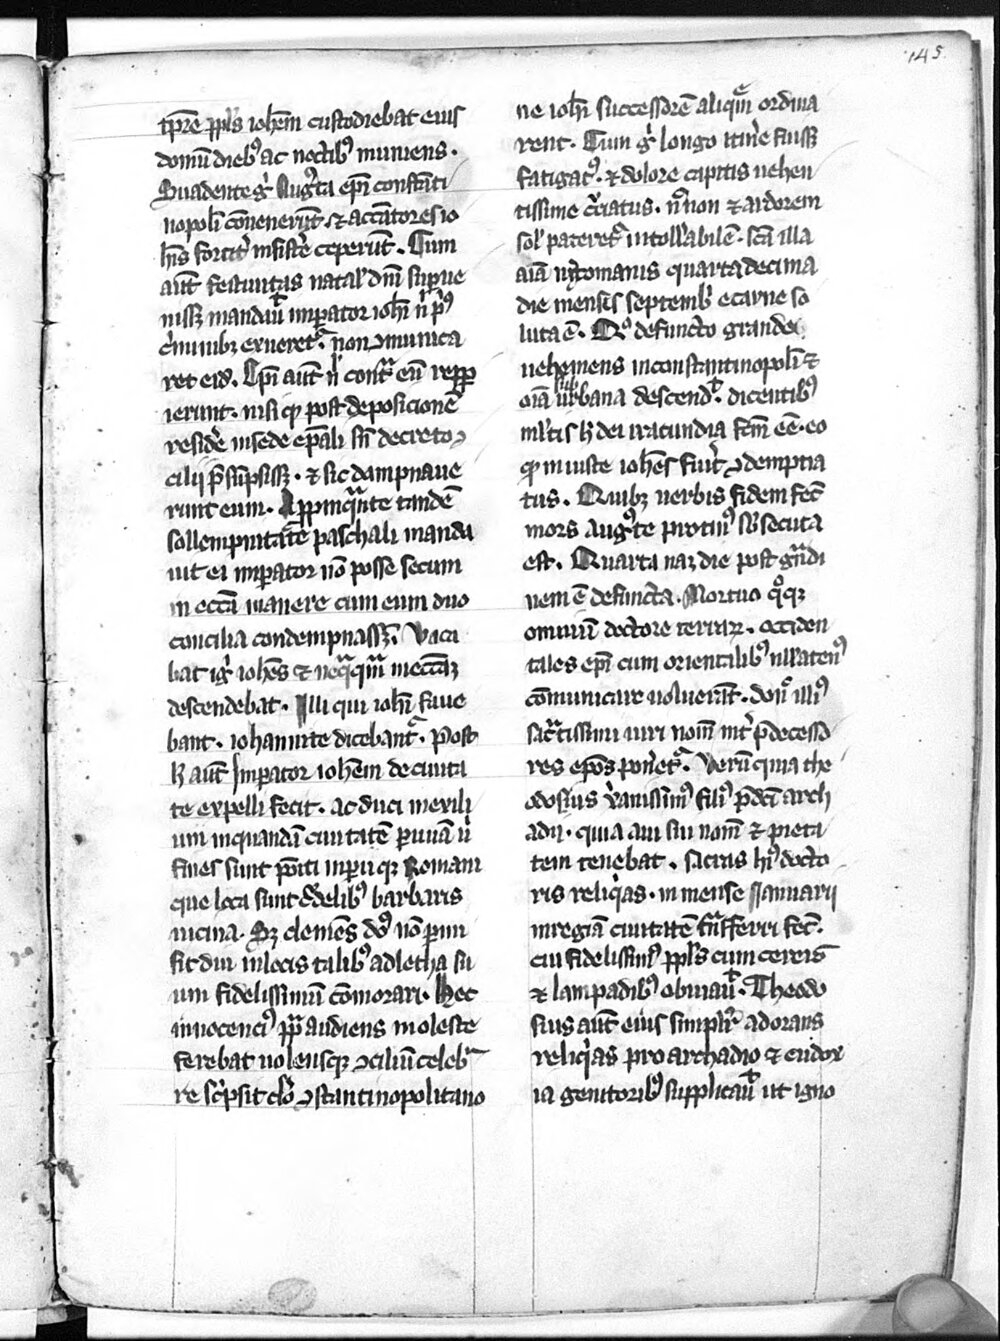 145
tp̄re ppl̄s ioh̄em custodiebat eius
domū dieb⁹ ac noctib⁹ muniens.
Suadente gͥ Augᷤta ep̄i constāti
nopolī cōuenerūt. ⁊ accātores io
h̄is fortit᷑ insistē ceperūt. Cum
aūt festiuitas natal᷑ dn̄i sup̱ue
nissꝫ mandau̅ imp̱ator ioh̄i
exueret᷑. non ꝯmunica
ret eid̄. Ep̄i aūt contᷓ eū repp̱
ierunt. nisi ꝙ post deposicionē
residē̄ in sede ep̄ali sn̄ decreto ꝯ
cilii p̄sūpsissꝫ. ⁊ sic dampnaue
runt eum. Appinqᷓnte tandē
sollempnitatē paschali manda
uit ei imp̱ator nō posse secum
in ecc̄a manere cum eum duo
concilia condempnassꝫ. Vaca
bat igͥ ioh̄es ⁊ neqᷓqᷓm in ecc̄aꝫ
descendebat. Illi qui ioh̄i faue
bant. iohannite dicebantᷓ. Post
h̄ aūt Imp̱ator ioh̄em de ciuita
te expelli fecit. ac duci in exili
um in quandā ciuitatē p̱uuā
fines sunt pōti imp̱iiqꝫ Romani
que loca sunt c̄delib⁹ barbaris
uicina. Sꝫ clemēs de⁹ nō p̱mi
sit diu in locis talib⁹ adletha su
um fidelissimū cōmorari. Hec
innocenci⁹ pp̄ audiens moleste
ferebat uolensqꝫ ꝯciliū celebᷓ
re sc̄psit cl̄o ꝯstantinopolitano
ne ioh̄i successorē aliquē ordina
rent. Cum gͥ longo itin̄e fuissꝫ
fatigat⁹. ⁊ dolore capitis uehen
tissime cͥciatus. n̄ non ⁊ ardorem
sol᷑ pateret᷑ intoll᷑abilē. sc̄a illa
aīa in ꝯmanis quartadecima
die mensis septemb᷑ e carne so
luta ē. Q⁰ defuncto grando
uehemens in constantinopolī ⁊
oīa suburbana descend̄. dicentib⁹
ml̄tis h̄ dei iracundia fc̄m eē. eo
ꝙ iniuste ioh̄es fuit᷑ ꝯdempna
tus. Quibꝫ uerbis fidem fec̄
mors Augᷤte protin⁹ sb̄secuta
est. Quarta naꝫ die post gn̄di
nem ē defuncta. Mortuo q⁰qꝫ
omniū doctore terraꝝ. occiden
tales ep̄i cum orientalib⁹ nll̄aten⁹
cōmunicare uoluerūt. don̄ illi⁹
sacᷓtissimi uiri nom̄ int᷑ p̄decesso
res ep̄os pon̄et᷑. Verū quia the
odosius xͥanissim⁹ fili⁹ p̄dc̄i arch
adii. quia aui sui nom̄ ⁊ pieta
tem tenebat. sacras h⁹ docto
ris reliqͥas. in mense Januarii
in regiā ciuitatē tᷓnsferri fec̄.
cui fidelissim⁹ ppl̄s cum cereis
⁊ lampadib⁹ obuiau̅. Theodo
sius aūt eius simpl᷑r adorans
reliqͥas pro archadio ⁊ eudox
ia genitorib⁹ supplicau̅ ut igno